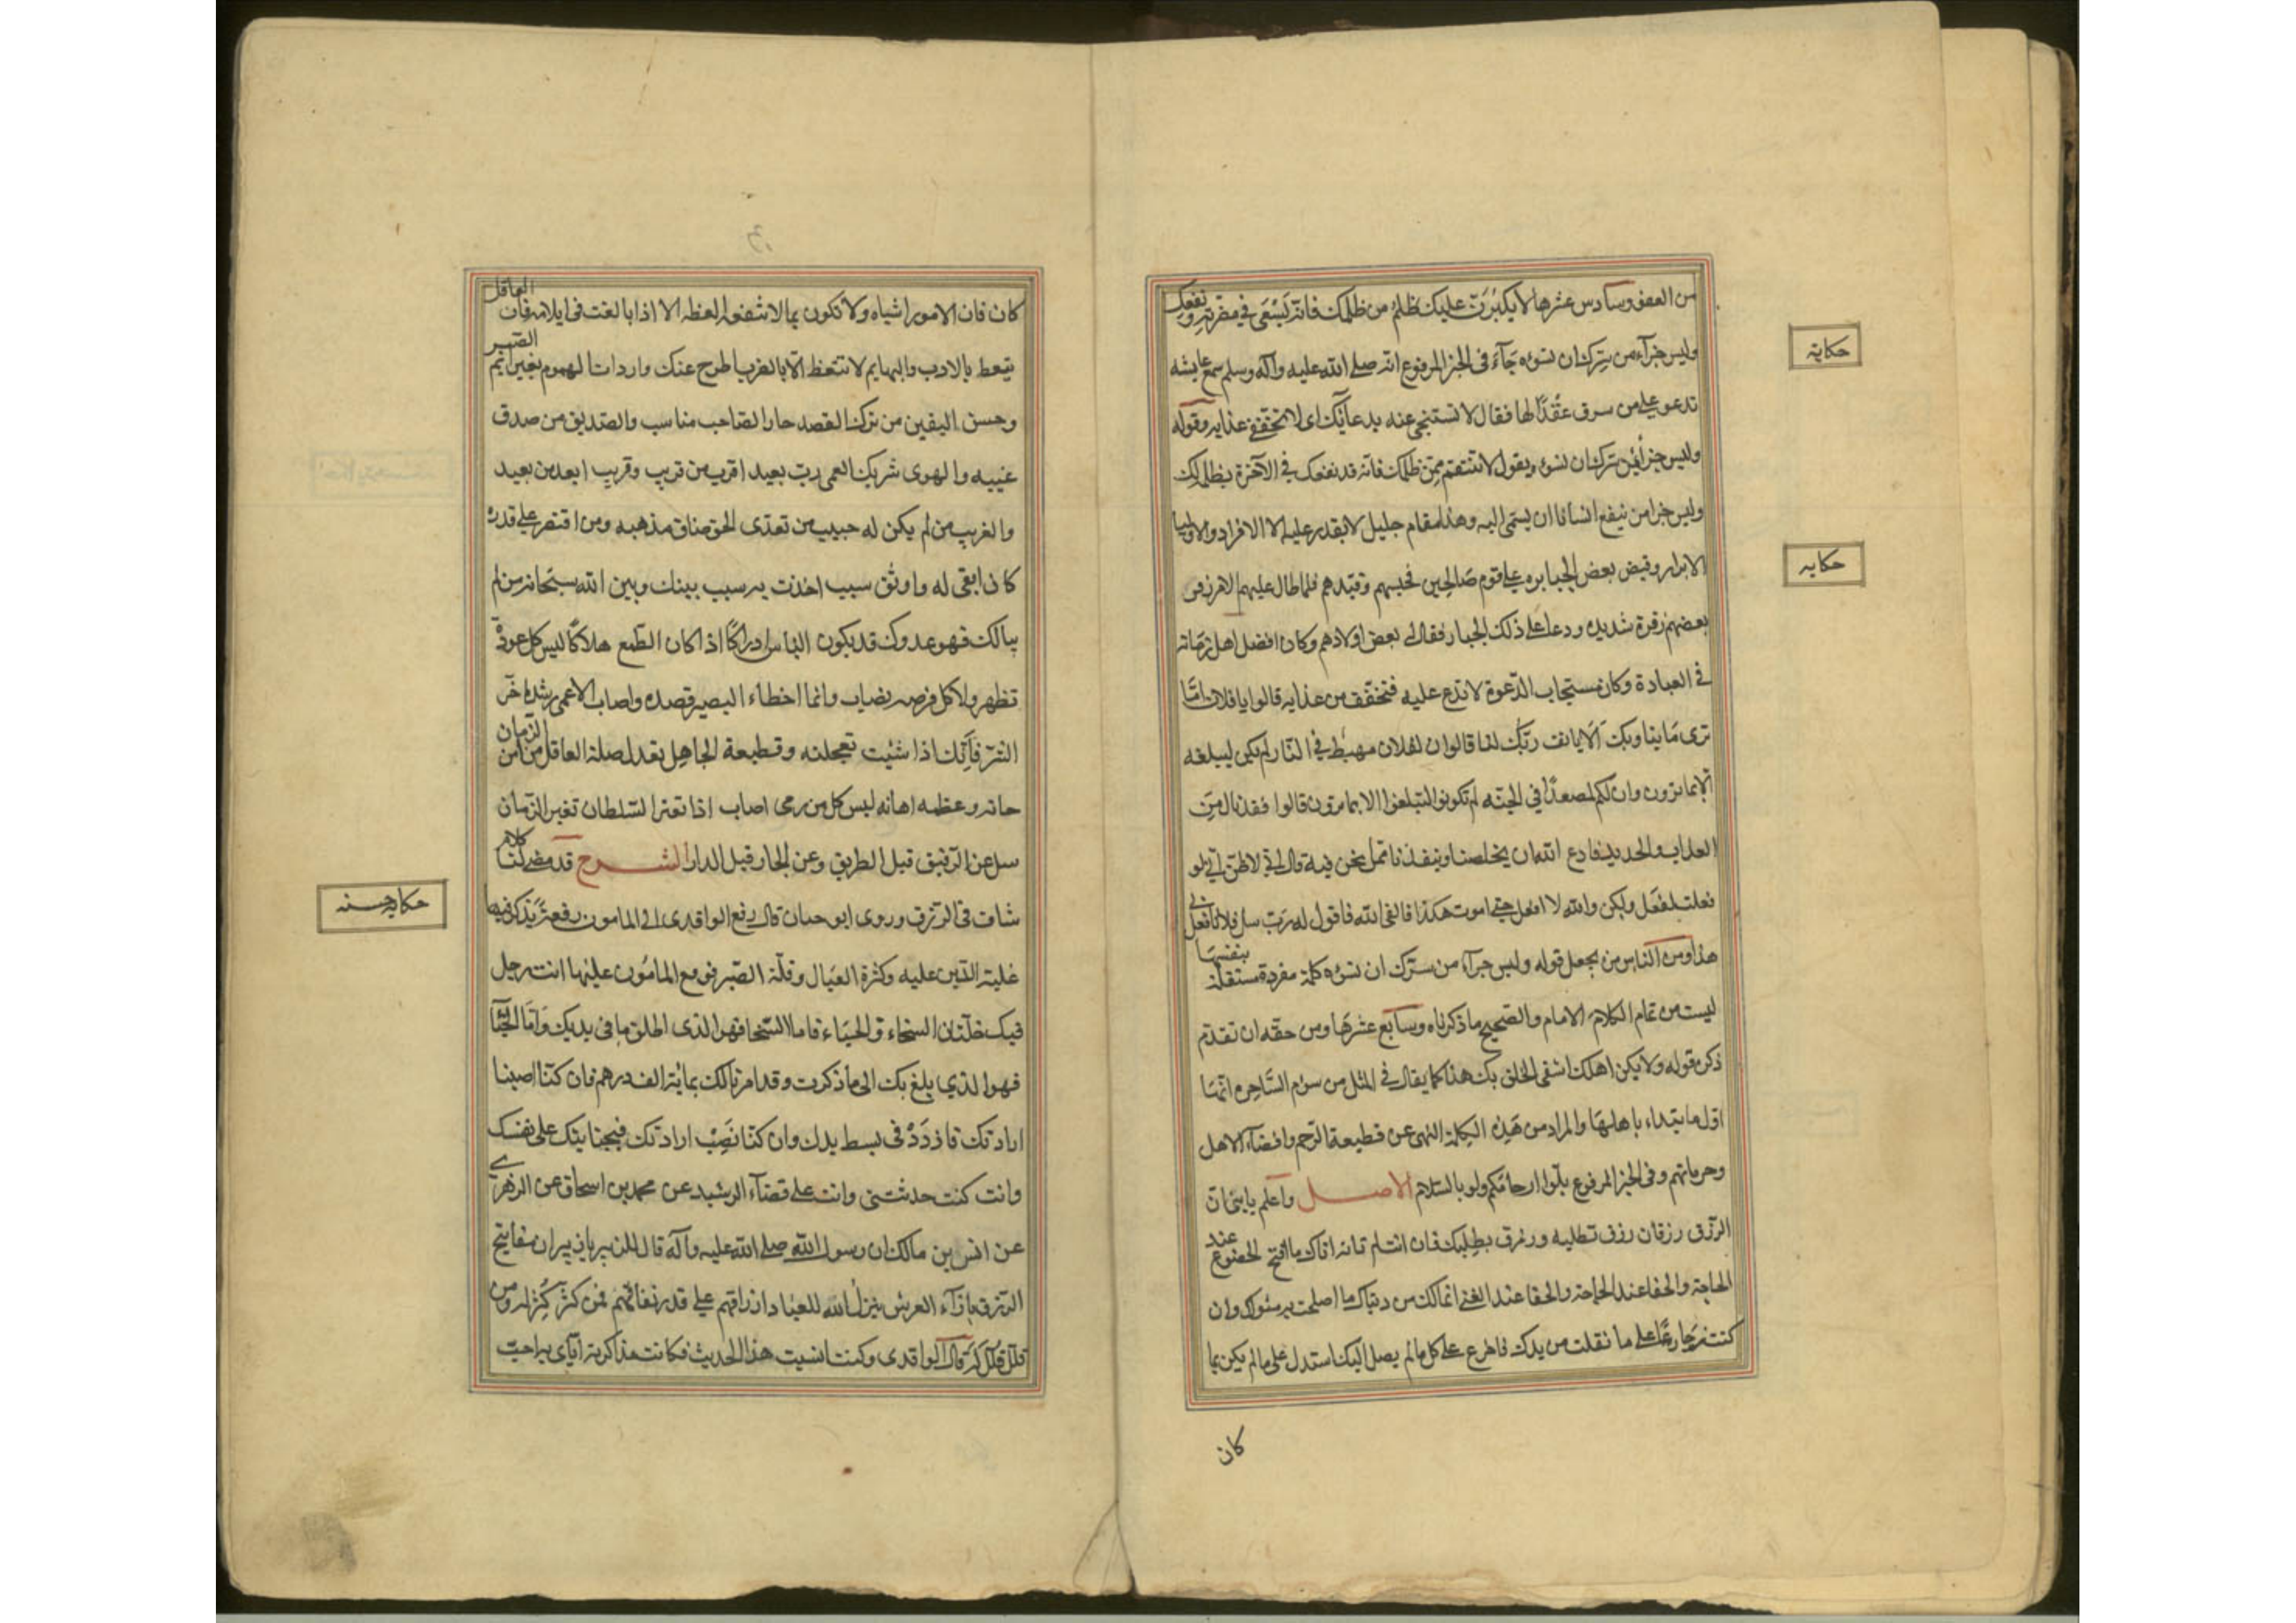 من العفو وسادس عشرها لا يكبرن عليك ظلم من ظلمك فانه يسعى في مضرته ونفعك
وليس جزاء من سرك ان تسوءه جاء في الخبر المرفوع انه صلى الله عليه وآله وسلم سمع عايشه
تدعو على من سرق عقدا لها فقال لا تستنجي عنه بدعائك اى لا تخففي عذابه وقوله
وليس جزاء من سرك ان تسوء ويقول لا تنتقم ممن ظلمك فانه قد نفعك في الآخرة بظلمه لك
وليس جزا من ينفع انسانا ان يسئ اليه وهذا مقام جليل لا يقدر عليه الا الافراد والاوليا
الابرار وقبض بعض الجبابره على قوم صالحين فحبسهم وقيدهم فلما طال عليهم الامر زفر
بعضهم زفرة شديده ودعا على ذلك الجبار فقال له بعض اولادهم وكان افضل اهل زمانه
في العبادة وكان مستجاب الدعوة لا تدع عليه فتخفف من عذابه قالوا يا فلان اما
ترى ما بنا وبك الا يانف ربك لنا قال ان لفلان مهبطا في النار لم يكن ليبلغه
الا بما ترون وان لكم لمصعدا في الجنه لم تكونوا لتبلغوا الا بما ترون قالوا فقد نال منا
العذاب والحديد فادع الله ان يخلصنا وينقذنا مما نحن فيه قال انى لاظن انى لو
فعلت لفعل ولكن والله لا افعل حتى اموت هكذا فالقى الله فاقول له رب سل فلانا لم فعل بي
هذا ومن الناس من يجعل قوله وليس جزاء من سرك ان تسوءه كلمة مفردة مستقلة بنفسها
ليست من تمام الكلام الامام والصحيح ما ذكرناه وسابع عشرها ومن حقه ان تقدم
ذكره قوله ولا يكن اهلك اشقى الخلق بك هذا كما يقال في المثل من سوم الساحره انها
اول ما تبتداء باهلها والمراد من هذه الكلمة النهى عن قطيعة الرحم واقصاء الاهل
وحرمانهم وفى الخبر المرفوع بلوا ارحامكم ولو بالسلام الاصل واعلم يا بنى ان
الرزق رزقان رزق تطلبه ورزق يطلبك فان انت لم تاته اتاك ما اقبح الخضوع عند
الحاجة والجفا عند الغنى انما لك من دنياك ما اصلحت به مثواك وان
كنت جازعا على ما تفلت من يدك فاجزع على كل ما لم يصل اليك استدل على ما لم يكن بما
كان
حكاية
حكايه
كان فان الامور اشباه ولا تكونن ممن لا تنفعه العظه الا اذا بالغت في ايلامه فان العاقل
يتعظ بالادب والبهايم لا تتعظ الا بالضرب اطرح عنك واردات الهموم بعزايم الصبر
وحسن اليقين من ترك القصد جار الصاحب مناسب والصديق من صدق
غيبه والهوى شريك العمى رب بعيد اقرب من قريب وقريب ابعد من بعيد
والغريب من لم يكن له حبيب من تعدى الحق ضاق مذهبه ومن اقتصر على قدره
كان ابقى له واوثق سبب اخذت به سبب بينك وبين الله سبحانه من لم
يبالك فهو عدوك قد يكون الياس ادراكا اذا كان الطمع هلاكا ليس كل عورة
تظهر ولا كل فرصه تصاب وانما اخطاء البصير قصده واصاب الاعمى رشده اخر
الشر فانك اذا شئت تعجلته وقطيعة الجاهل تعدل صلة العاقل من امن الزمان
خانه ومن عظمه اهانه ليس كل من رمى اصاب اذا تغير السلطان تغير الزمان
سل عن الرفيق قبل الطريق وعن الجار قبل الدار الشرح قد مضى لنا كلام
شاف في الرزق وروى ابو حيان قال رفع الواقدى الى المامون رقعة يذكر فيها
غلبة الدين عليه وكثرة العيال وقلة الصبر فوقع المامون عليها انت رجل
فيك خلتان السخاء والحياء فاما السخا فهو الذى اطلق ما في يديك واما الحيا
فهو الذي بلغ بك الى ما ذكرت وقد امرنا لك بمائة الف درهم فان كنا اصبنا
ارادتك فازدد في بسط يدك وان كنا لم نصب ارادتك فبجنايتك على نفسك
وانت كنت حدثتنى وانت على قضاء الرشيد عن محمد بن اسحاق عن الزهرى
عن انس بن مالك ان رسول الله صلى الله عليه وآله قال للزبير يا زبير ان مفاتيح
الرزق بازاء العرش ينزل الله للعباد ارزاقهم على قدر نفقاتهم فمن كثر كثر له ومن
قلل قلل له قال الواقدى وكنت انسيت هذا الحديث فكانت مذاكرته اياى به احب
حكايه حسنه